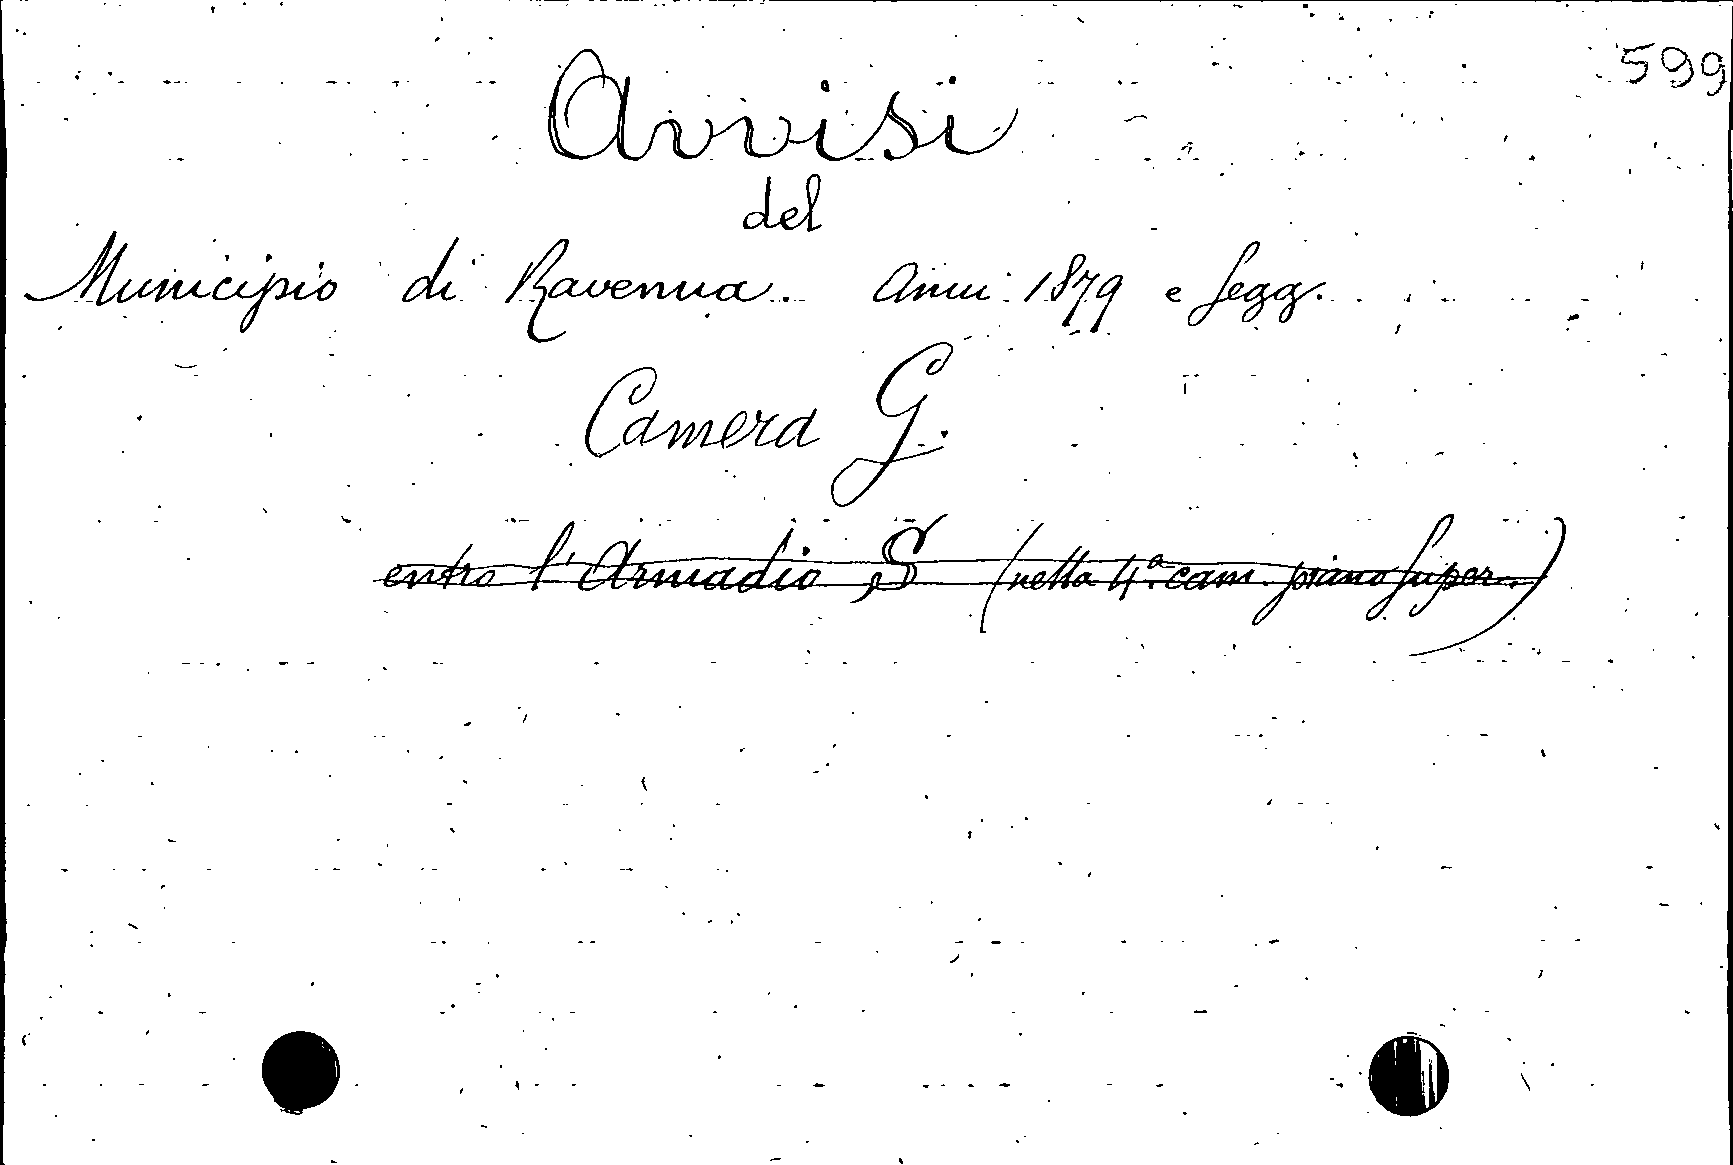 599
Avvisi
del
Municipio di Ravenna. Anni 1879 e segg.
Camera G.
entro l'Armadio S (nella 4ª cam. piano super.)